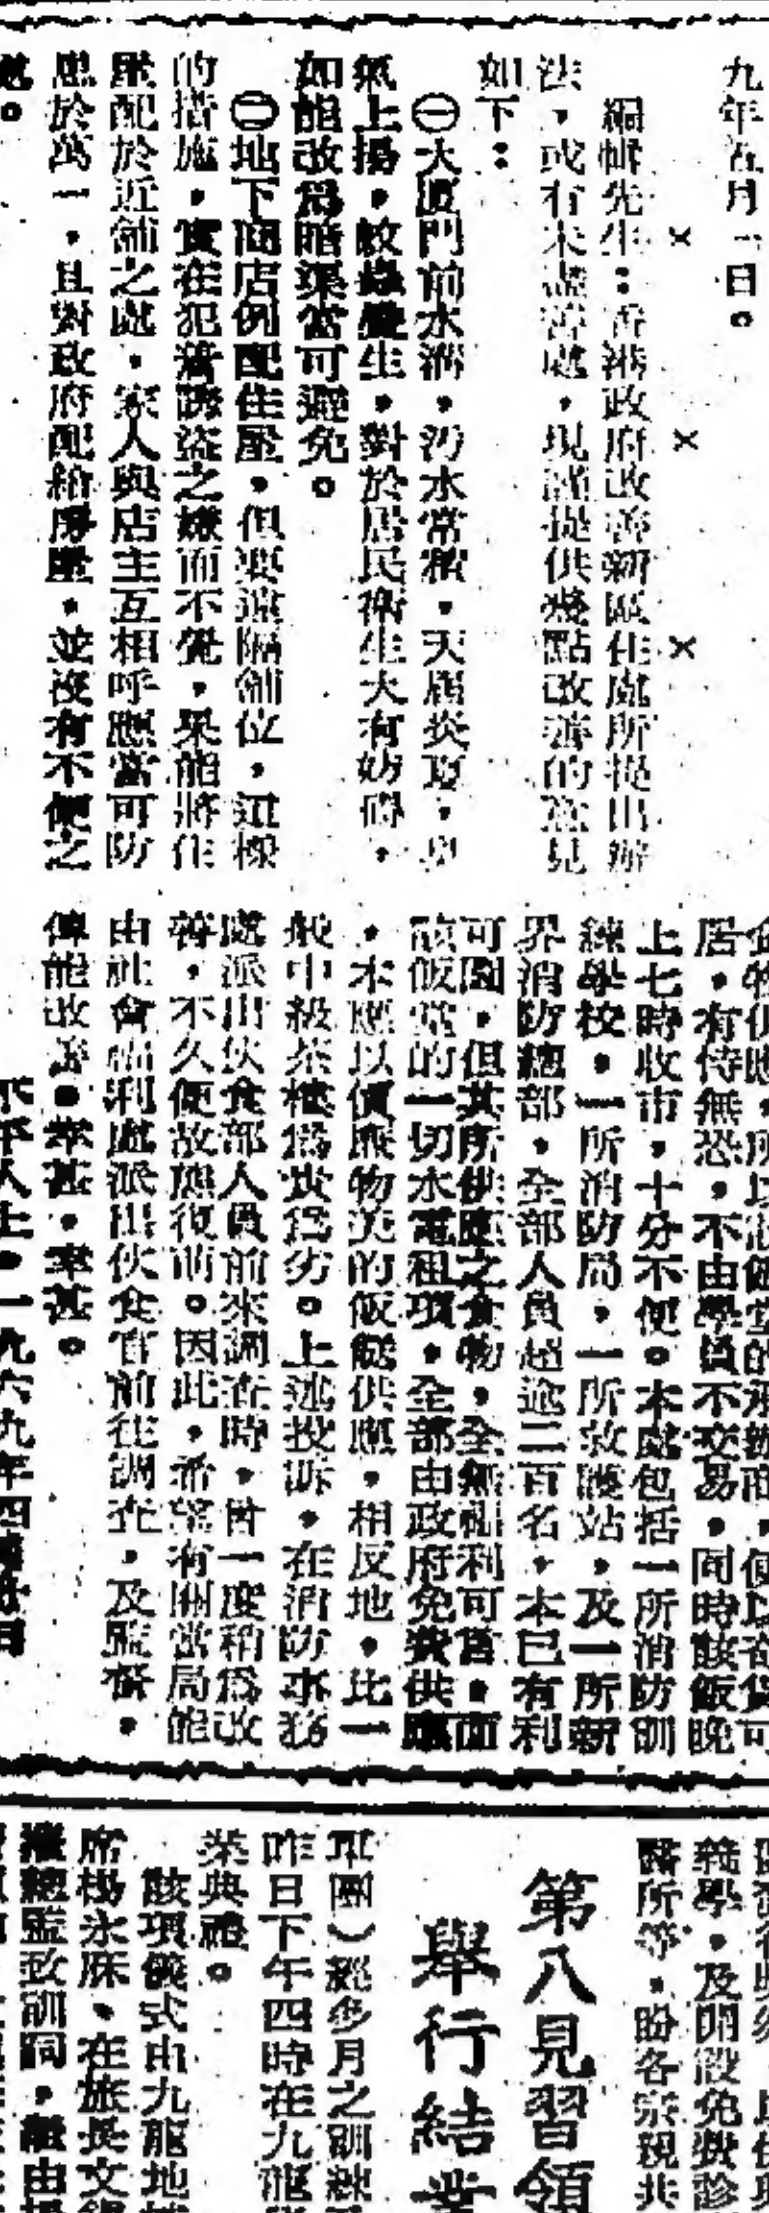 九年五月一日。
× × ×
編輯先生：香港政府改善新區住處所提出辦
法，或有未盡善處，現謹提供幾點改善的意見
如下：
㊀大厦門前水溝，污水常積，天屆炎夏，臭
氣上揚，蚊蟲叢生，對於居民衛生大有妨碍，
如能改爲暗渠當可避免。
㊁地下商店例配住屋，但要遠隔舖位，這樣
的措施，實在犯着誨盜之嫌而不覺，果能將住
屋配於近舖之處，家人與店主互相呼應當可防
患於萬一，且對政府配給房屋，並沒有不便之
處。
居，有恃無恐，不由學員不交易，同時該飯
上七時收市，十分不便。本處包括一所消防訓
練學校，一所消防局，一所救護站，及一所新
界消防總部，全部人員超逾二百名，本已有利
可圖，但其所供應之食物，全無福利可言，而
該飯堂的一切水電租項，全部由政府免費供應
，本應以價廉物美的飯餸供應，相反地，比一
般中級茶樓爲貴爲劣。上述投訴，在消防事務
處派出伙食部人員前來調查時，曾一度稍爲改
善，不久便故態復萌。因此，希望有關當局能
由社會福利處派出伙食官前往調查，及監督，
俾能改善，幸甚，幸甚。
不平人上，一九六九年四月廿日
義學，及開設免費診
醫所等，盼各宗親共
第八見習領
舉行結業
軍團）經多月之訓練
昨日下午四時在九龍
業典禮。
該項儀式由九龍地
席楊永庥，在旅長文錦